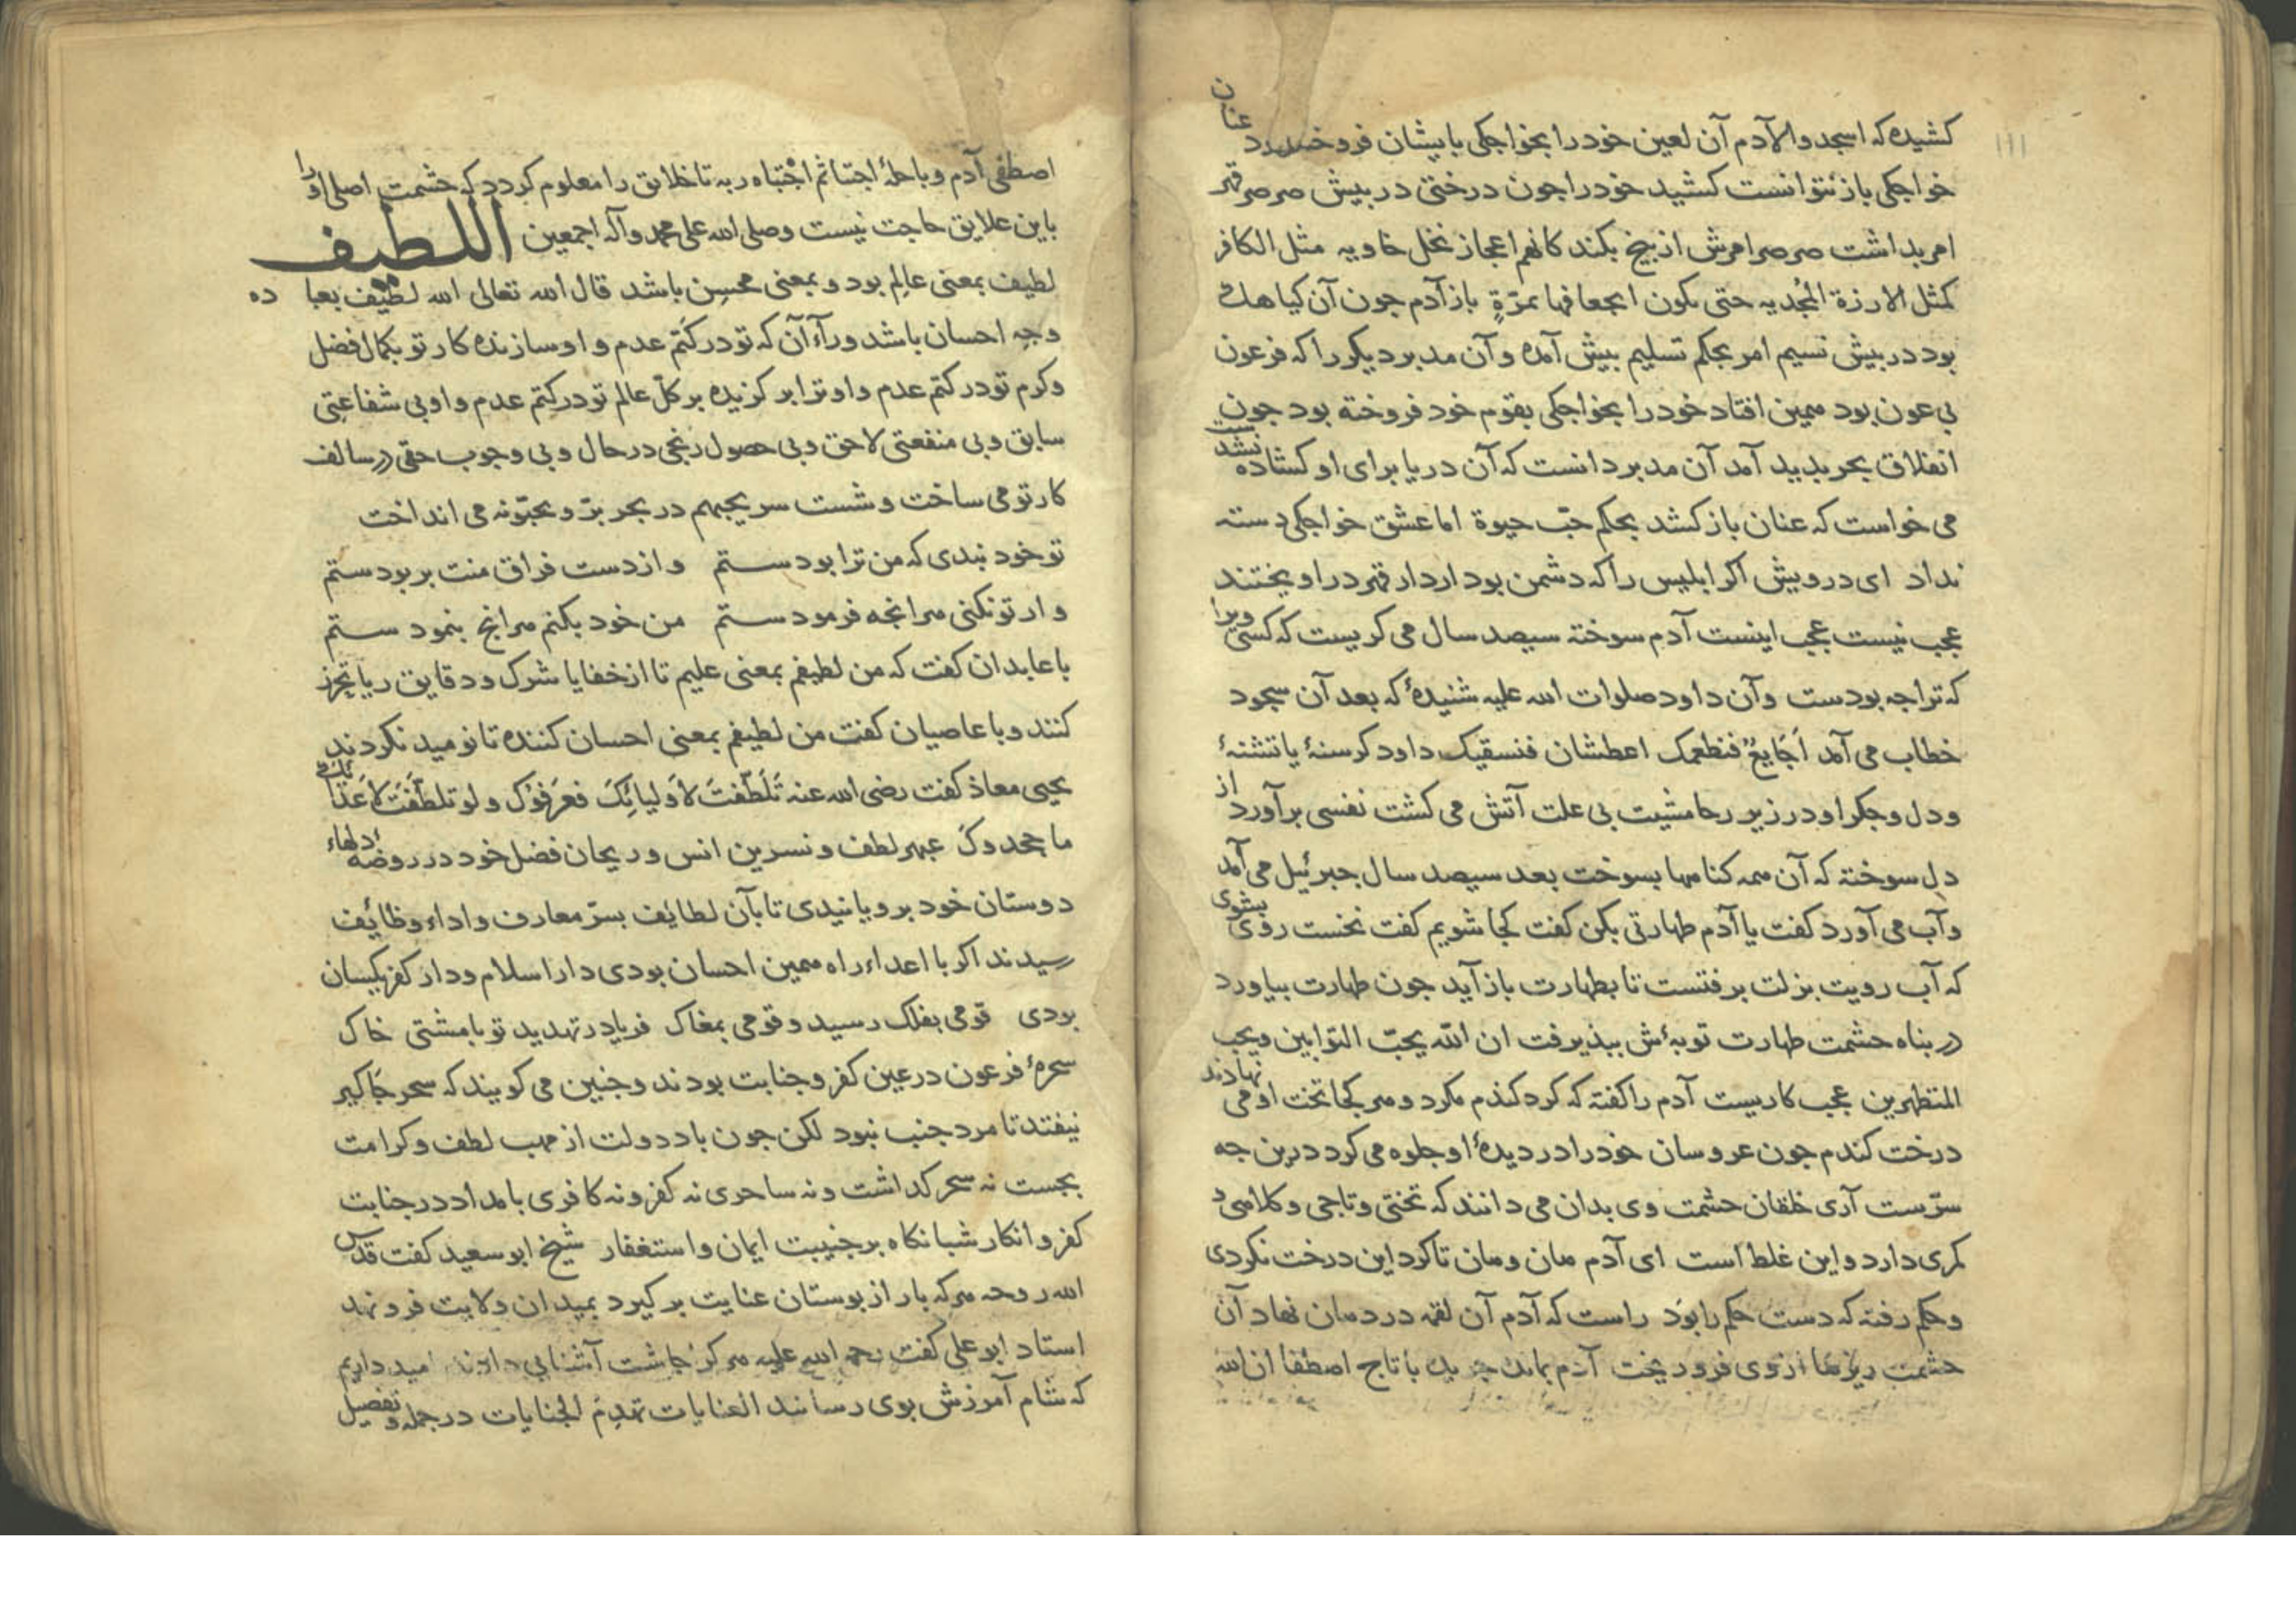 کشیده که اسجدوا لآدم آن لعین خود را بخواجکی بایشان فروخته بود عنان
خواجکی باز نتوانست کشید خود را جون درختی در بیش صرصر قهر
امر بداشت صرصر امرش از بیخ بکند کانهم اعجاز نخل خاویه مثل الکافر
کمثل الارزة المجدیه حتی یکون انجعافها بمرّةٍ باز آدم جون آن کیاهک
بود در بیش نسیم امر بحکم تسلیم بیش آمده و آن مدبر دیکر را که فرعون
بی عون بود همین افتاد خود را بخواجکی بقوم خود فروخته بود جون
انفلاق بحر بدید آمد آن مدبر دانست که آن دریا برای او کشاده نشد
می خواست که عنان باز کشد بحکم حبّ حیوة اما عشق خواجکی دسته
نداد ای درویش اکر ابلیس را که دشمن بود از دار قهر در اویختند
عجب نیست عجب اینست آدم سوخته سیصد سال می کریست که کسی ویرا
که ترا جه بودست و آن داود صلوات الله علیه شنیدهٔ که بعد آن سجود
خطاب می آمد أجایعٌ فنطعمک اعطشان فنسقیک داود کرسنهٔ یا تشنهٔ
و دل و جکر او در زیر رحا مشیت بی علت آتش می کشت نفسی برآورد از
دل سوخته که آن همه کناهها بسوخت بعد سیصد سال جبرئیل می آمد
و آب می آورد کفت یا آدم طهارتی بکن کفت کجا شویم کفت نخست روی بشوی
که آب رویت بزلت برفتست تا بطهارت باز آید جون طهارت بیاورد
در بناه حشمت طهارت توبه‌ٔش ببذیرفت ان الله یحبّ التوّابین ویحب
المتطهرین عجب کاریست آدم را کفته که کرد کندم مکرد و هر کجا تخت او می نهادند
درخت کندم جون عروسان خود را در دیدهٔ او جلوه می کرد درین جه
سرّست آری خلقان حشمت وی بدان می دانند که تختی و تاجی و کلاهی و
کمری دارد و این غلط است ای آدم هان و هان تا کرد این درخت نکردی
و حکم رفته که دست حکم را بوَد راست که آدم آن لقمه در دهان نهاد آن
حشمت ریزها از وی فرو ریخت آدم بماند جریده با تاج اصطفا ان الله
اصطفی آدم و با حلهٔ اجتبا ثم اجتباه ربه تا خلایق را معلوم کردد که حشمت اصلی او را
باین علایق حاجت نیست وصلی الله علی محمد وآله اجمعین اللطیف
لطیف بمعنی عالِم بود و بمعنی محسِن باشد قال الله تعالی الله لطیف بعباده
وجه احسان باشد ورآء آن که تو در کتم عدم و او سازنده کار تو بکمال فضل
و کرم تو در کتم عدم و او ترا بر کزیده بر کلّ عالم تو در کتم عدم و او بی شفاعتی
سابق و بی منفعتی لاحق و بی حصول رنجی در حال و بی وجوب حقی در سالف
کار تو می ساخت و شست سر یحبهم در بحر برّ و یحبّونه می انداخت
تو خود نبدی که من ترا بودستم و از دست فراق منت بربودستم
و ار تو نکنی هرانجه فرمودستم من خود بکنم هرانج بنمودستم
با عابدان کفت که من لطیفم بمعنی علیم تا از خفایا شرک و دقایق ریا تحرز
کنند و با عاصیان کفت من لطیفم بمعنی احسان کننده تا نومید نکردند
یحیی معاذ کفت رضی الله عنه تَلَطَّفتَ لأولیائِکَ فعَرَفوک و لو تلطّفتَ لأعدائک
ما جحدوکَ عبهر لطف و نسرین انس و ریحان فضل خود در روضهٔ دلهاء
دوستان خود برویانیدی تا بآن لطایف بسرّ معارف و اداء وظائف
رسیدند اکر با اعداء راه همین احسان بودی دار اسلام و دار کفر یکسان
بودی قومی بفلک رسید و قومی بمغاک فریاد ز تهدید تو با مشتی خاک
سحرهٔ فرعون در عین کفر و جنابت بودند و جنین می کویند که سحر جاکیر
نیفتد تا مرد جنب نبود لکن جون باد دولت از مهب لطف و کرامت
بجست نه سحر کداشت و نه ساحری نه کفر و نه کافری بامداد در جنابت
کفر و انکار شبانکاه بر جنیبت ایمان و استغفار شیخ ابو سعید کفت قدس
الله روحه هر که بار از بوستان عنایت بر کیرد بمیدان ولایت فرو نهد
استاد ابو علی کفت رحمة الله علیه هر کرا جاشت آشنایی دادند امید داریم
که شام آمرزش بوی رسانند العنایات تهدِم الجنایات در جمله و تفصیل